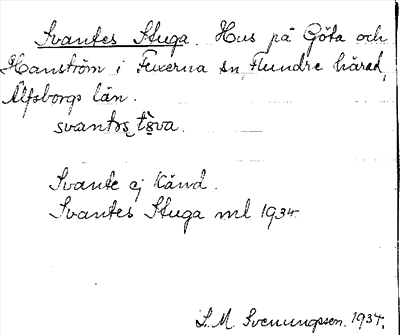 Svantes Stuga. Hus på Göta och
Hanström i Fuxerna sn, Flundre härad,
Älfsborgs län.
svantəs
Svante ej känd.
Svantes Stuga ml 1934.
S. M. Svenungsson. 1934.